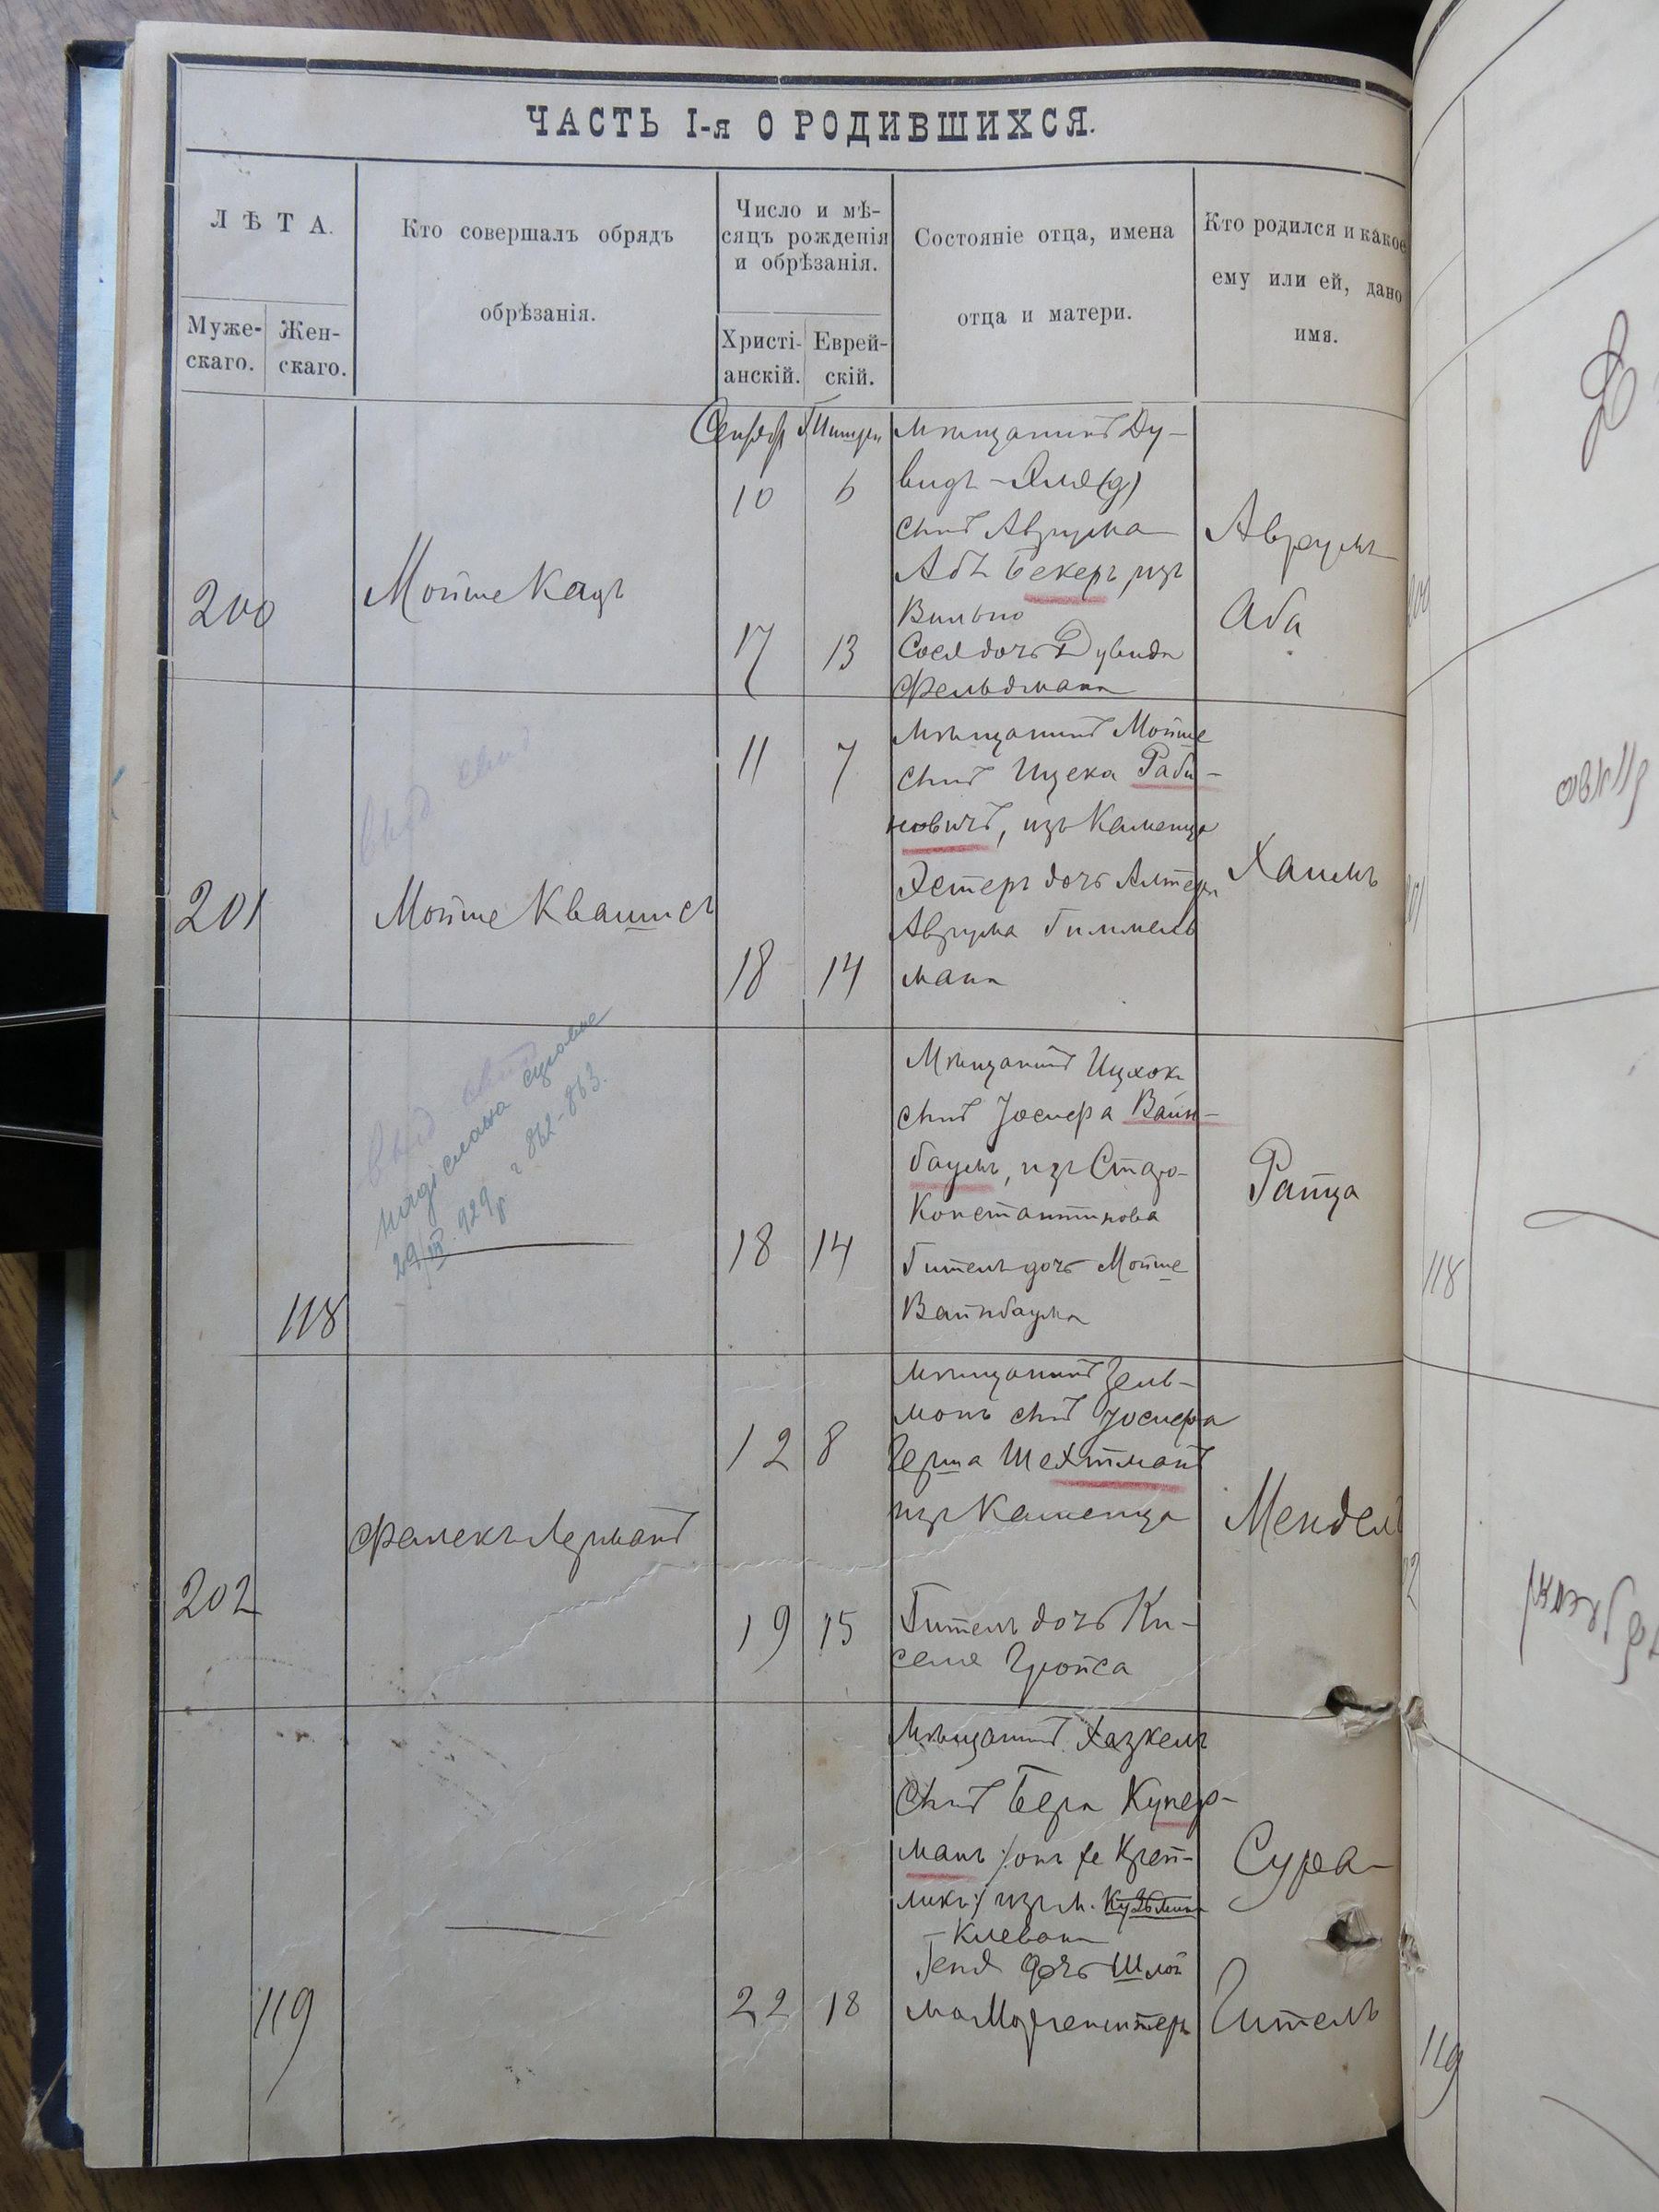 ЧАСТЬ I-я О РОДИВШИХСЯ.
ЛѢТА.
Муже-
скаго.
Жен-
скаго.
Кто совершалъ обрядъ
обрѣзанія.
Число и мѣ-
сяцъ рожденія
и обрѣзанія.
Христі-
анскій.
Еврей-
скій.
Состояніе отца, имена
отца и матери.
Кто родился и какое
ему или ей, дано
имя.
200
Мойше Кацъ
10
6
17
13
Мѣщанинъ Ду-
видъ
сынъ Аврума
Аба Бекеръ, изъ
Вильно
дочь Дувида
Фельдмана
Аврумъ
Аба
201
Мойше
11
7
18
14
Мѣщанинъ Мойше
сынъ Ицека Раби-
новичъ, изъ Каменца
Эстеръ дочь Алтера
Аврума Гиммель
мана
Хаимъ
118
выд
29/III 929 р. 862-863.
18
14
Мѣщанинъ Ицхокъ
сынъ Іосифа Вайн-
баумъ, изъ Старо-
Константинова
Гитель дочь Мойше
Вайнбаума
202
12
8
19
15
Мѣщанинъ Зель-
манъ сынъ Іосифа
Герша Шехтманъ
изъ Каменца
Гитель дочь Ки-
селя Гройса
Мендель
119
22
18
Мѣщанинъ Хазкель
сынъ Бера Купер-
манъ /: онъ же
изъ м. Кузьмина
Клевани
Геня дочь Шлой
ма Моргенштерн
Сура
Гитель
118
119